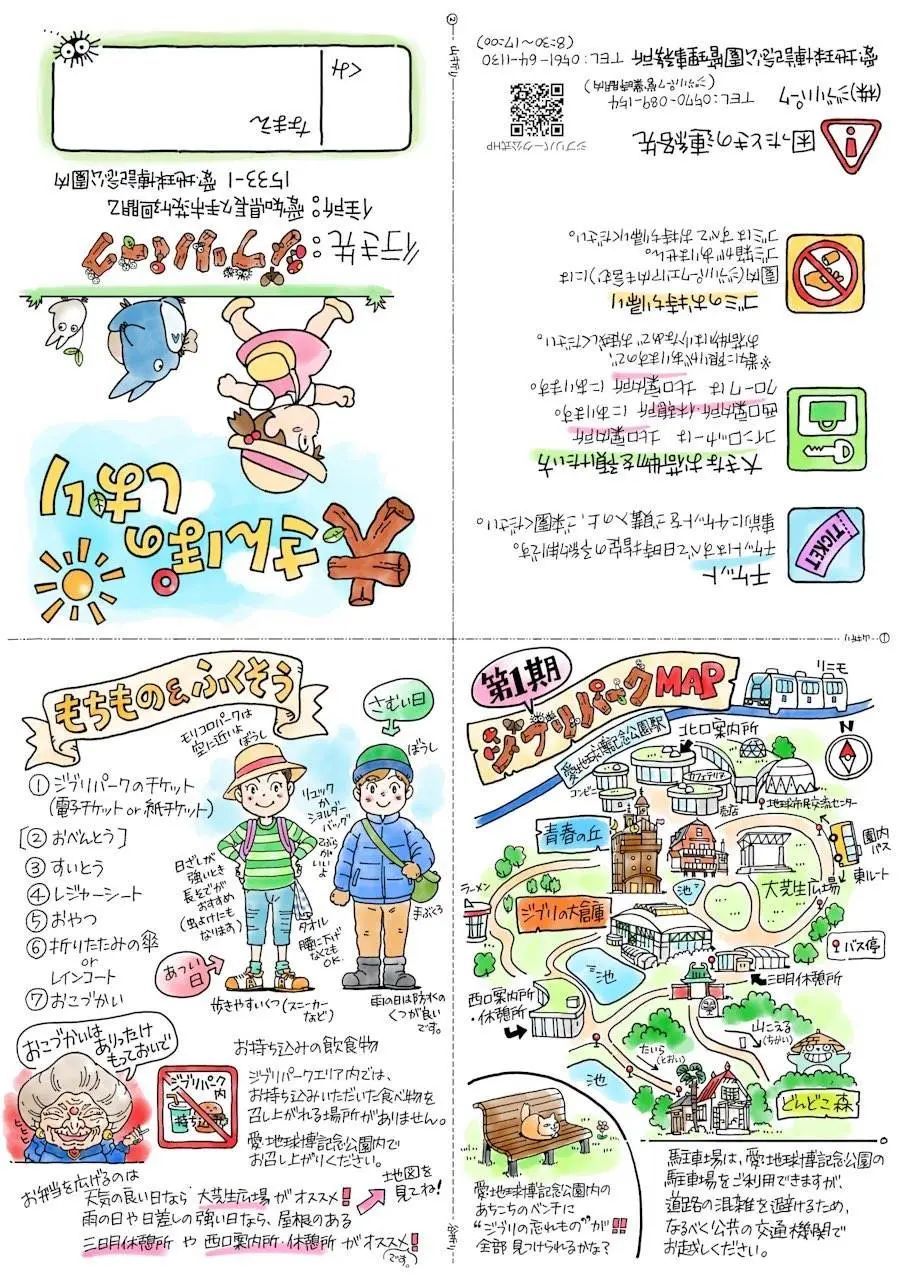 さんぽの
しおり
行き先：ジブリパーク
住所：愛知県長久手市茨ケ廻間乙
1533-1 愛・地球博記念公園内
くみ
なまえ
チケット
チケットはすべて日時指定の予約制です。
事前にチケットをご購入の上、ご来園ください。
TICKET
大きなお荷物を預けたい方
コインロッカーは 北口案内所
西口案内所・休憩所 にあります。
クロークは 北口案内所 にあります。
※数に限りがありますので、
お荷物は少なめでお越しください。
ゴミのお持ち帰り
園内(ジブリパークエリア内も含む)には
ゴミ箱がありません。
ゴミはすべてお持ち帰りください。
困ったときの連絡先
(株)ジブリパーク TEL:0570-089-154
(ジブリパーク営業時間内)
愛・地球博記念公園管理事務所 TEL:0561-64-1130
(8:30〜17:00)
ジブリパーク公式HP
② 山折り
① 山折り
もちもの&ふくそう
① ジブリパークのチケット
(電子チケット or 紙チケット)
[② おべんとう]
③ すいとう
④ レジャーシート
⑤ おやつ
⑥ 折りたたみの傘
or
レインコート
⑦ おこづかい
モリコロパークは
空に近いよ
ぼうし
さむい日
ぼうし
リュック
か
ショルダー
バッグ
がいいよ
日ざしが
強いとき
長そでが
おすすめ
(虫よけにも
なります)
タオル
腰に下げ
なくても
OK.
手ぶくろ
あつい
日
歩きやすいくつ(スニーカー
など)
雨の日は防水の
くつが良い
です。
おこづかいは
ありったけ
もっておいで
ジブリパーク
内
持ち込み
お持ち込みの飲食物
ジブリパークエリア内では、
お持ち込みいただいた食べ物を
召し上がれる場所がありません。
愛・地球博記念公園内で
お召し上がりください。
お弁当を広げるのは
天気の良い日なら 大芝生広場 がオススメ!
雨の日や日差しの強い日なら、屋根のある
三日月休憩所 や 西口案内所・休憩所 がオススメ!
(です。)
地図を
見てね!
第1期
ジブリパークMAP
リニモ
愛・地球博記念公園駅
北口案内所
N
コンビニ
カフェテリア
売店
地球市民交流センター
青春の丘
園内
バス
東ルート
池
大芝生広場
ラーメン
ジブリの大倉庫
バス停
池
三日月休憩所
西口案内所
・休憩所
山こえる
(ちかい)
たいら
(とおい)
池
どんどこ森
愛・地球博記念公園内の
あちこちのベンチに
“ジブリの忘れもの”が!!
全部見つけられるかな?
駐車場は、愛・地球博記念公園の
駐車場をご利用できますが、
道路の混雑を避けるため、
なるべく公共の交通機関で
お越しください。